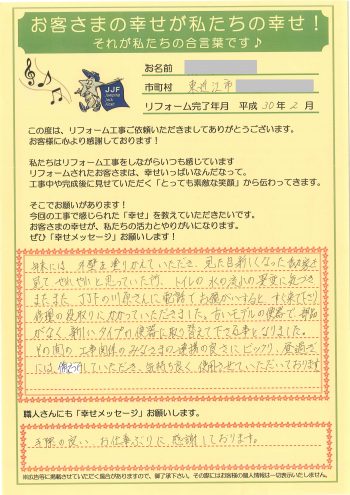 お客さまの幸せが私たちの幸せ！
それが私たちの合言葉です♪
JJF
お名前
市町村 東近江市
リフォーム完了年月 平成30年2月
この度は、リフォーム工事ご依頼いただきましてありがとうございます。
お客様に心より感謝しております！
私たちはリフォーム工事をしながらいつも感じています
リフォームされたお客さまは、幸せいっぱいなんだなって。
工事中や完成後に見せていただく「とっても素敵な笑顔」から伝わってきます。
そこでお願いがあります！
今回の工事で感じられた「幸せ」を教えていただきたいです。
お客さまの幸せが、私たちの活力とやりがいになります。
ぜひ「幸せメッセージ」お願いします！
年末には、外壁を塗りかえていただき、見た目新しくなった
見て やれやれと思っていた所、トイレの水の流れの異変に気づき
またまた、JJFの川原さんに電話でお願いすると、すぐ来て下さり
修理の段取りにかかっていただきました。古いモデルの便器で部品
がなく、新しいタイプの便器に取り替えて下さる事となりました。
その間の工事関係のみなさまの連携の良さにビックリ、昼過ぎ
には、していただき、気持ち良く使用させていただいております
職人さんにも「幸せメッセージ」お願いします。
手際の良い、お仕事ぶりに感謝しております。
※広告等に掲載させていただく場合がありますので、御了承下さい。その際にはお客様の個人情報は一切表示いたしません。